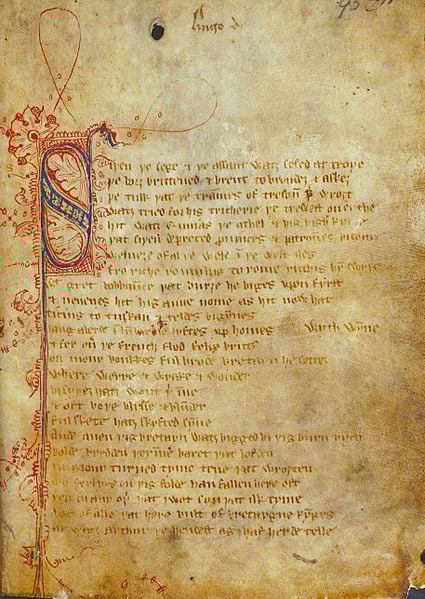 Hugo de
Siþen þe sege & þe assaut watz sesed at troye
þe borȝ brittened & brent to brondeȝ & askez
þe tulk þat þe trammes of tresoun þ̵ wroȝt
watz tried for his tricherie þe trewest on erthe
hit watz ennias þe athel & his highe kynde
þat siþen depreced prouinces & patrounes bicome
welneȝe of al þe wele in þe west iles
fro riche romulus to rome ricchis hym swyþe
gret bobbaunce þat burȝe he biges vpon fyrst
& neuenes hit his aune nome as hit now hat
ticius to tuskan & teldes bigynnes
langaberde in lumbardie lyftes vp homes wyth wynne
& fer ouer þe french flod felix brutus
on mony bonkkes ful brode bretayn he settez
where werre & wrake & wonder
bi syþez hatz wont þerinne
& oft boþe blysse & blunder
ful skete hatz skyfted synne
Ande quen þis bretayn watz bigged bi þis burn rych
bolde bredden þerinne baret þat lofden
in mony turned tyme tene þat wroȝten
mo ferlyes on þis folde han fallen here oft
þen in any oþer þat I wot syn þat ilk tyme
bot of alle þat here bult of bretaygne kynges
ay watz arthur þe hendest as I haf herde telle